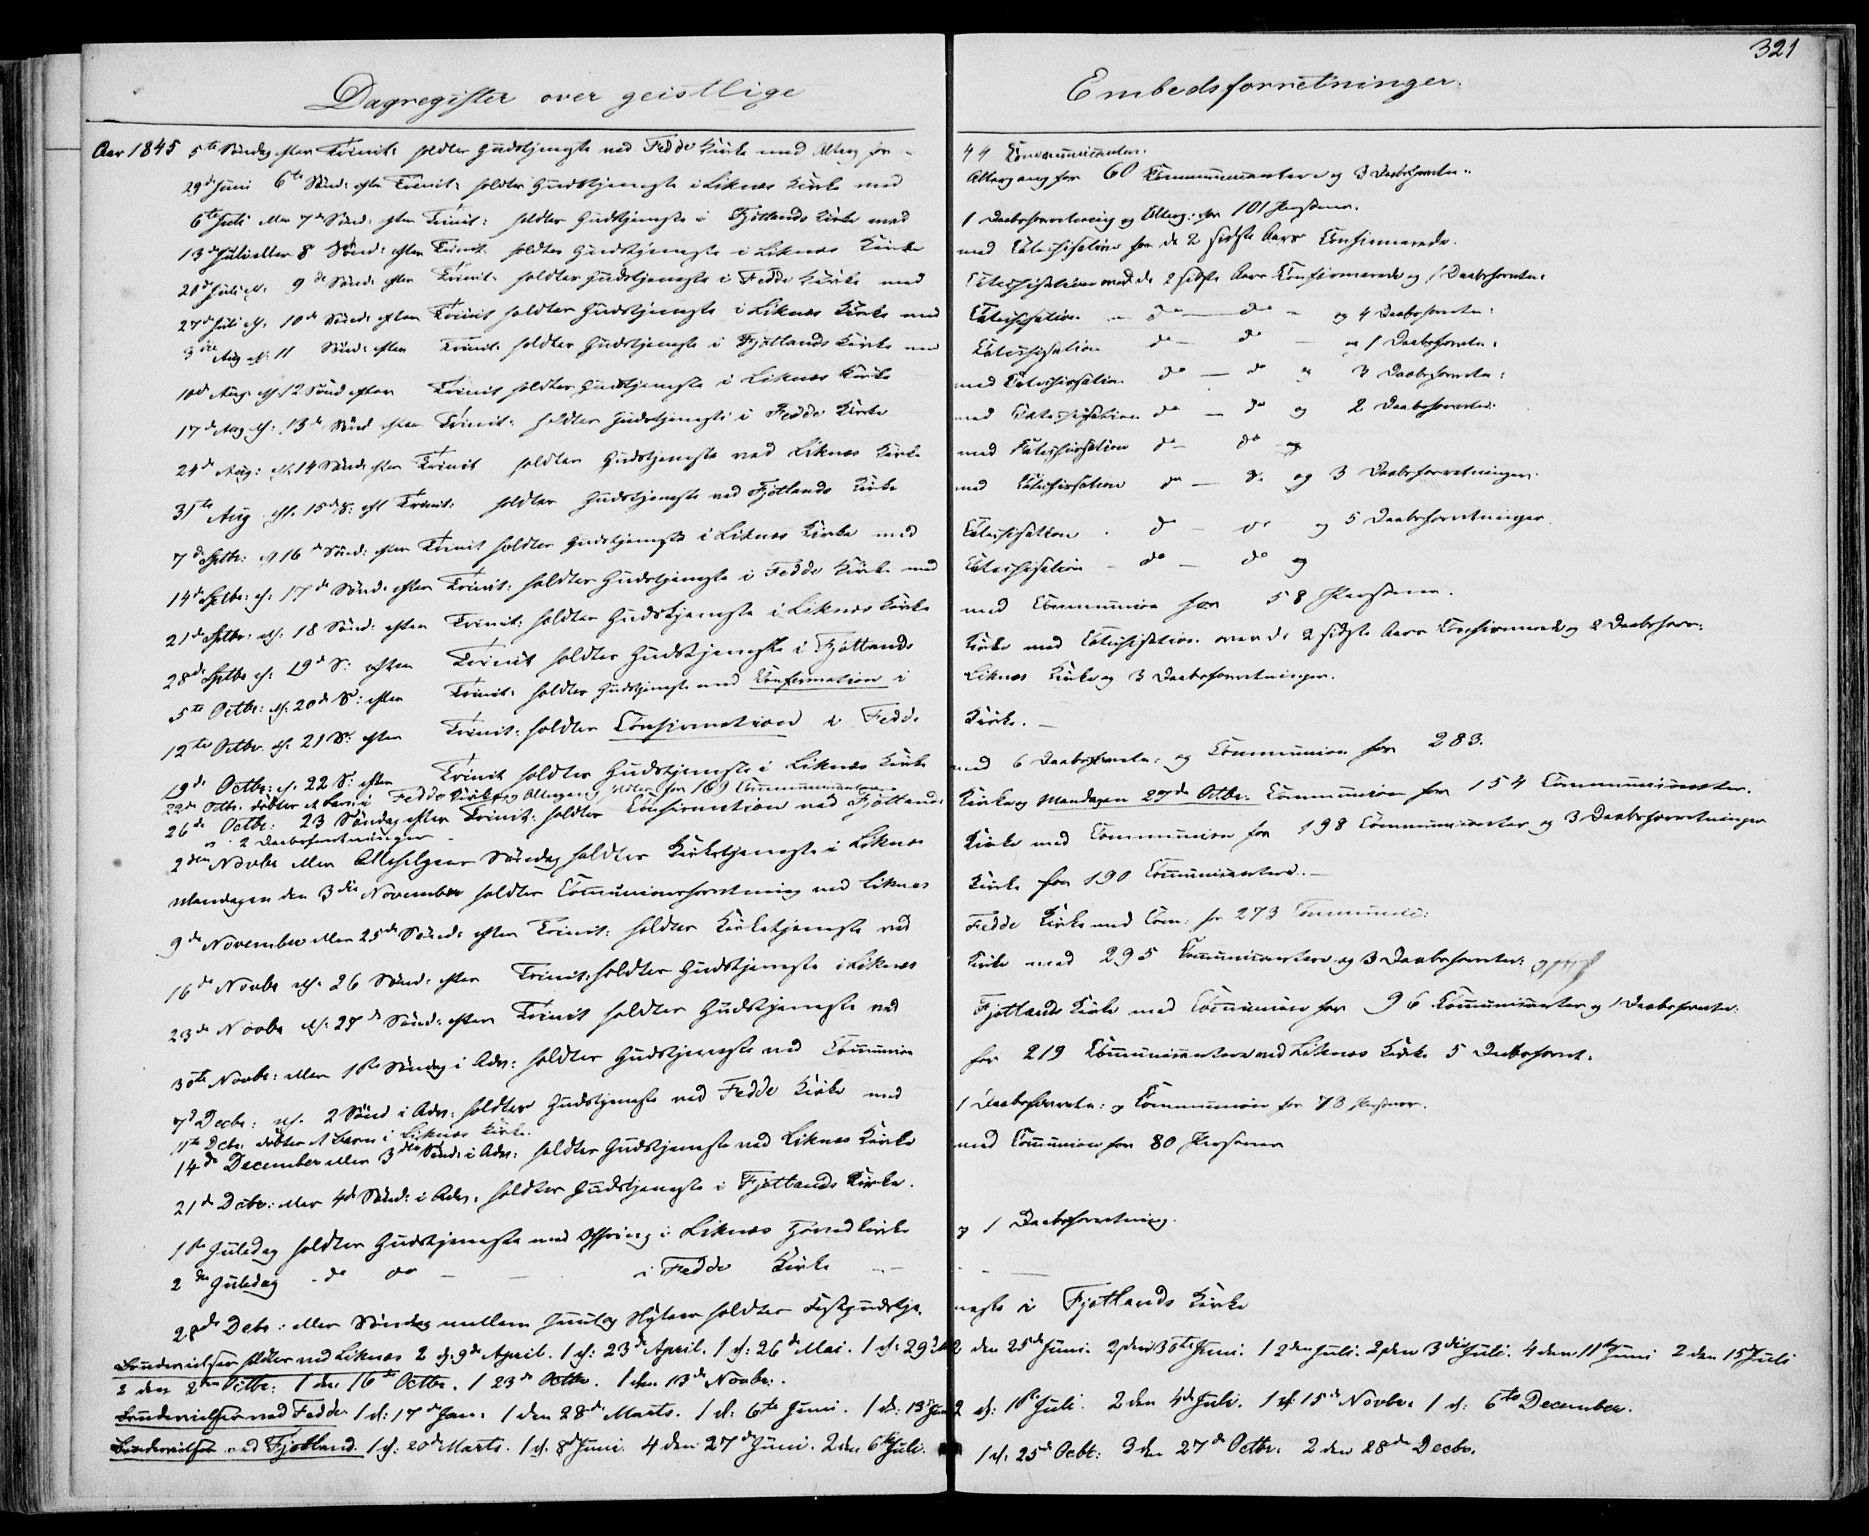 321
Dagregister over geistlige Embedsforretninger.
Aar 1845 5te Søndag efter Trinit: holdtes Gudstjeneste ved Fedde Kirke med Alterg for 44 Communicanter.
29de Juni 6te Sønd: efter Trinit: holdtes Gudstjeneste i Liknes Kirke med Altergang for 60 Communicantere og 3 Daabsforretn:
6te Juli eller 7de Sønd: efter Trinit: holdtes Gudstjeneste i Fjotlands Kirke med 1 Daabsforretning og Alterg: for 101 Personer.
13de Juli eller 8 Sønd: efter Trinit: holdtes Gudstjeneste i Liknes Kirke med Catechisation for de 2 sidste Aars Confirmerede.
20de Juli el. 9de Sønd: efter Trinit: holdtes Gudstjeneste i Fedde Kirke med Catechisation med de 2 sidste Aars Confirmerede og 1 Daabsforretn:
27de Juli el. 10de Sønd: efter Trinit holdtes Gudstjeneste i Liknes Kirke med Catechisation - do - do - og 4 Daabsforretn:
3die Aug el: 11 Sønd: efter Trinit: holdtes Gudstjeneste i Fjotlands Kirke med Catechisation do - do - og 1 Daabsforretn:
10de Aug. el. 12 Sønd efter Trinit holdtes Gudstjeneste i Liknes Kirke med Catechisation do - do og 3 Daabsforretn:
17de Aug el: 13de Sønd efter Trinit: holdtes Gudstjeneste i Fedde Kirke med Catechisation do - do og 2 Daabsforretn:
24de Aug: el. 14 Sønd: efter Trinit holdtes Gudstjeneste ved Liknes Kirke med Catechisation do - do og
31te Aug el. 15de S: eft Trinit: holdtes Gudstjeneste ved Fjotlands Kirke med Catechisation do - do og 3 Daabsforretninger.
7de Septbr: el 16de Sønd: efter Trinit holdtes Gudstjeneste i Liknes Kirke med Catechisation. do - do og 5 Daabsforretninger.
14de Septbr: el. 17de Sønd: efter Trinit: holdtes Gudstjeneste i Fedde Kirke med Catechisation - do - do og
21de Septbr: el: 18 Sønd: efter Trinit: holdtes Gudstjeneste i Liknes Kirke med Communion for 58 Personer.
28de Septbr el: 19de S: efter Trinit holdtes Gudstjeneste i Fjotlands Kirke med Catechisation over de 2 sidste Aars Confirmerede og 2 Daabsforr:
5te Octbr: el: 20de S: efter Trinit: holdtes Gudstjeneste med Confirmation i Liknes Kirke og 3 Daabsforretninger.
12te Octbr. el. 21 S: efter Trinit: holdtes Confirmation i Fedde Kirke. -
19de Octbr: el. 22 S: efter Trinit holdtes Gudstjeneste i Liknes Kirke med 6 Daabsforretn: og Communion for 283.
22de Octbr. døbtes et Barn i Fedde Kirke og Altergang holdtes for 169 Communicanter.
26de Octbr: 23 Søndag efter Trinit: holdtes Confirmation ved Fjotlands Kirke og Mandagen 27de Octbr. Communion for 154 Communicanter.
og 2 Daabsforretninger -
2den Novbr eller Allehelgens Søndag holdtes Kirketjeneste i Liknes Kirke med Communion for 198 Communicanter og 3 Daabsforretninger
Mandagen den 3die November holdtes Communionsforretning ved Liknes Kirke for 190 Communicantere. -
9de November eller 25de Sønd: efter Trinit: holdtes Kirketjeneste ved Fedde Kirke med Com: for 273 Communic:
16de Novbr el. 26 Sønd: efter Trinit: holdtes Gudstjeneste i Liknes Kirke med 295 Communicantere og 3 Daabsforretn:
23de Novbr el: 27de Sønd: efter Trinit holdtes Gudstjeneste ved Fjotlands Kirke med Communion for 96 Communicanter og 1 Daabsforretn:
30te Novbr: eller 1ste Søndag i Adv: holdtes Gudstjeneste med Communion for 219 Communicantere ved Liknes Kirke 5 Daabsforret:
7de Decbr: el. 2 Sønd i Adv: holdtes Gudstjeneste ved Fedde Kirke med 1 Daabsforretn: og Communion for 78 Personer.
11te Decbr. døbtes et Barn i Liknes Kirke.
14de December eller 3die Sønd: i Adv: holdtes Gudstjeneste ved Liknes Kirke med Communion for 80 Personer
21de Decbr: eller 4de Sønd: i Adv: holdtes Gudstjeneste i Fjotlands Kirke.
1ste Juledag holdtes Gudstjeneste med Offring i Liknes Hovedkirke og 1 Daabsforretning.
2den Juledag - do do - - i Fedde Kirke - -
28de Decbr: eller Søndag mellem Juul og Nytaar holdtes Gudstjeneste i Fjotlands Kirke
Brudevielser holdtes ved Liknes 2 d: 9de April. 1 d: 23de April. 1 d: 26de Mai. 1 d: 29de 2 den 25de Juni. 2 den 30te Juni. 1 2den Juli. 2 den 3die Juli. 4 den 11te Juni 2 den 15de Juli
2 den 2den Octbr: 1 den 16te Octbr. 1 23de Octbr. 1 den 13de Novbr.
Brudevielser ved Fedde 1 d: 17de Jan: 1 den 28de Marts. 1 d: 6te Juni. 1 d: 13de Juni 2 d: 1ste Juli. 2 den 4de Juli. 1 d: 15de Novbr. 1 d: 6te December.
Brudevielser ved Fjotland. 1 d: 20de Marts. 1 d: 8de Juni. 4 den 27de Juni. 2 den 6te Juli. 1 d: 25de Octbr: 3 den 27de Octbr. 2 den 28de Decbr.